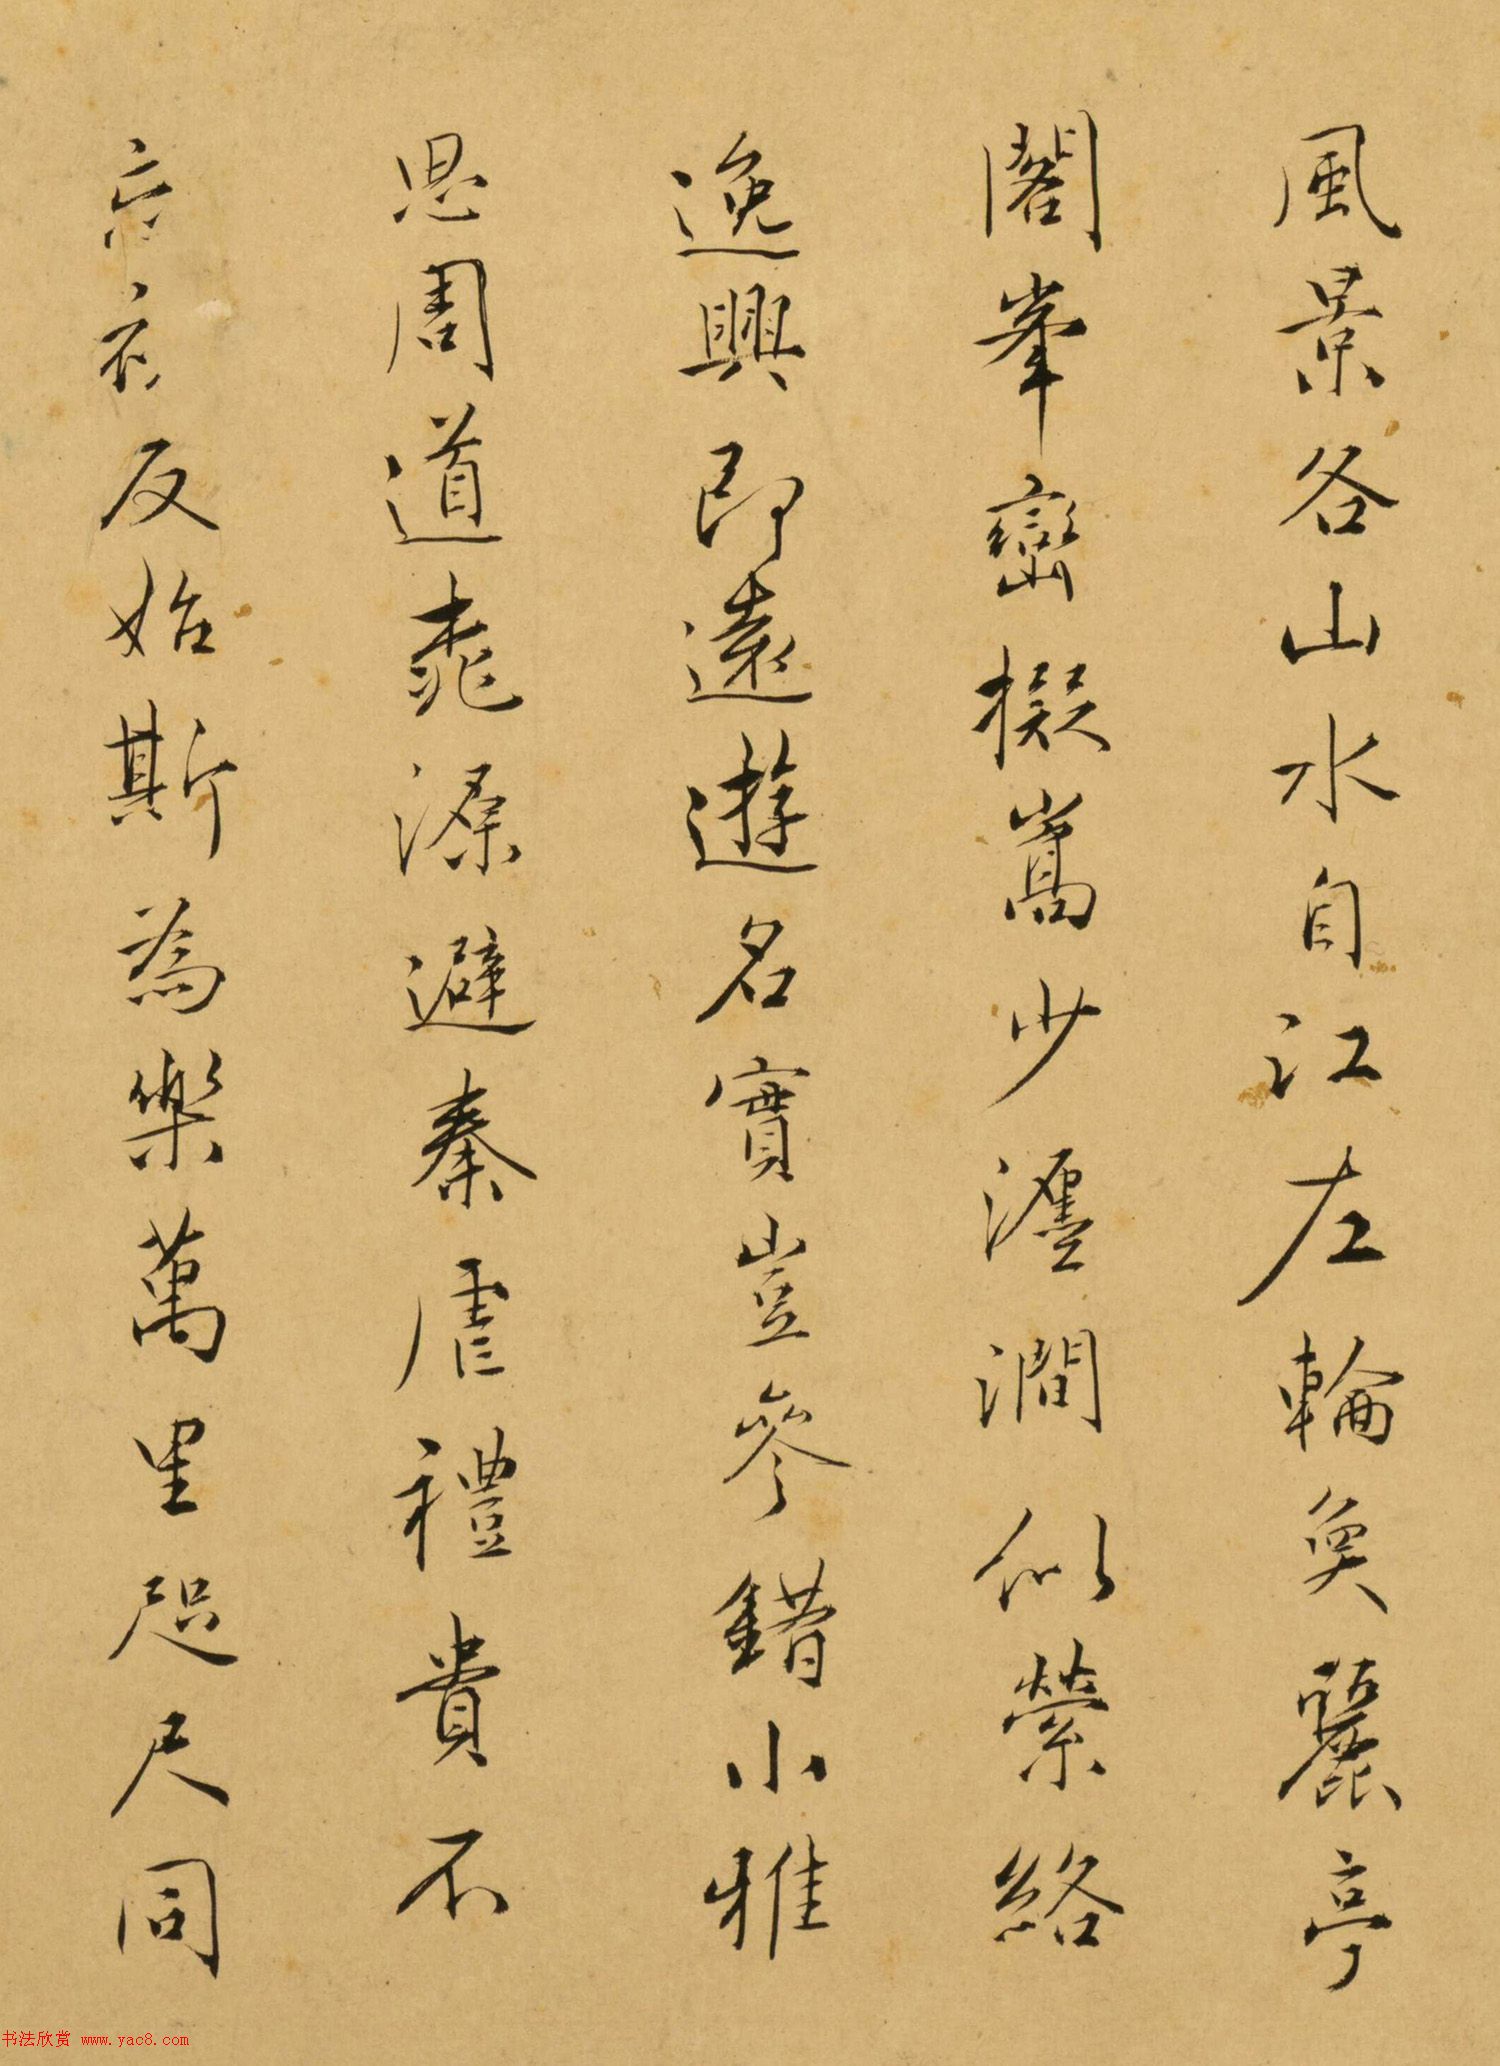 風景各山水自江左輪奐麗亭
閣峯巒擬嵩少瀍澗似縈絡
逸興即遠遊名實豈參錯小雅
思周道桃源避秦虐禮貴不
反始斯為樂萬里咫尺同
书法欣赏 www.yac8.com